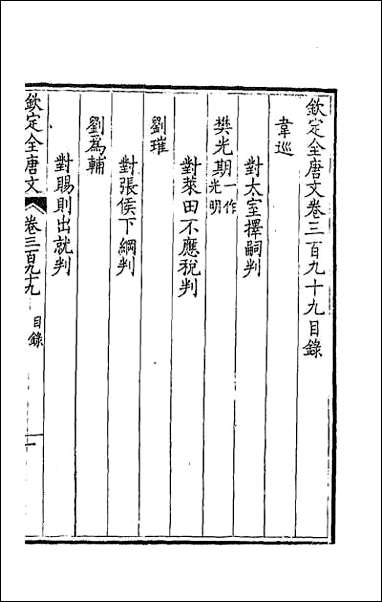 欽定全唐文卷三百九十九目錄
韋巡
對太室擇嗣判
樊光期一作光明
對萊田不應稅判
劉璀
對張侯下綱判
劉為輔
對賜則出就判
欽定全唐文
卷三百九十九
目錄
一